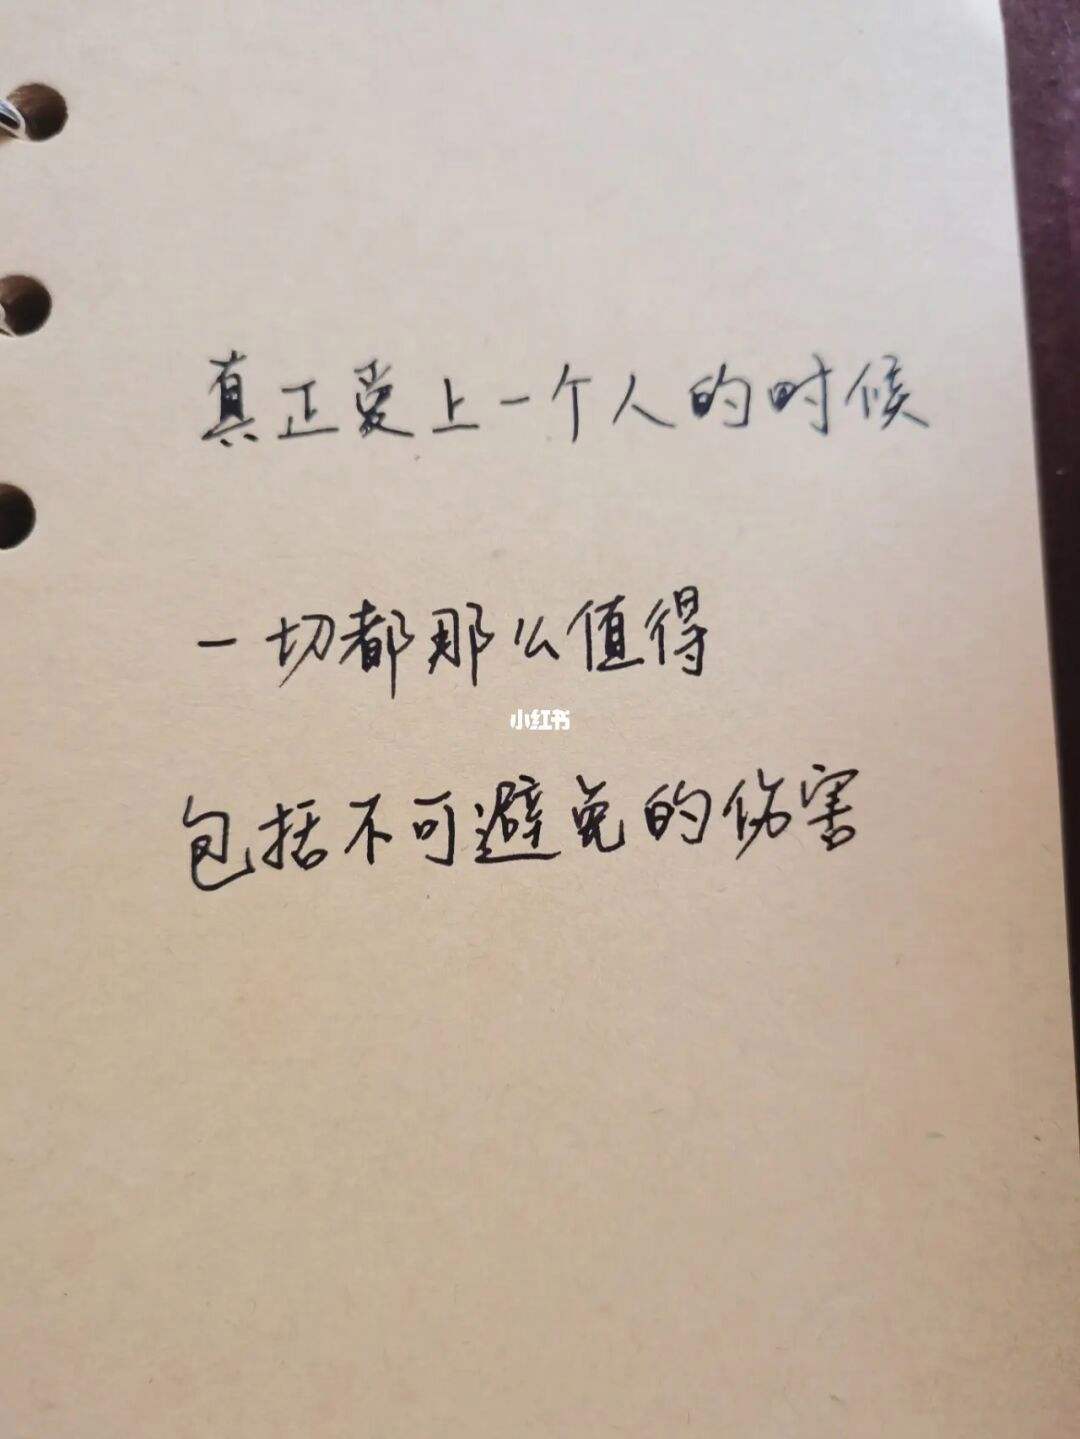 真正爱上一个人的时候
一切都那么值得
小红书
包括不可避免的伤害